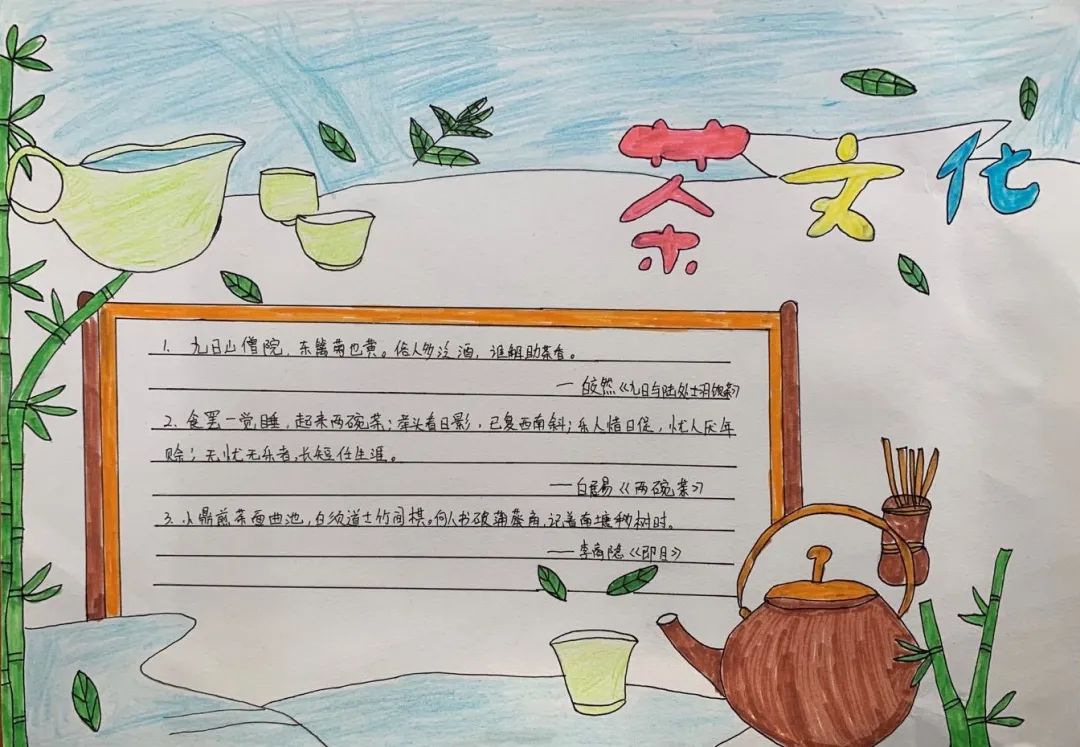 茶文化
1. 九日山僧院，东篱菊也黄。俗人多泛酒，谁解助茶香。
—皎然《九日与陆处士羽饮茶》
2. 食罢一觉睡，起来两碗茶；举头看日影，已复西南斜；乐人惜日促，忧人厌年
赊；无忧无乐者，长短任生涯。
——白居易《两碗茶》
3. 小鼎煎茶面曲池，白须道士竹间棋。何人书破蒲葵扇，记着南塘移树时。
——李商隐《即目》